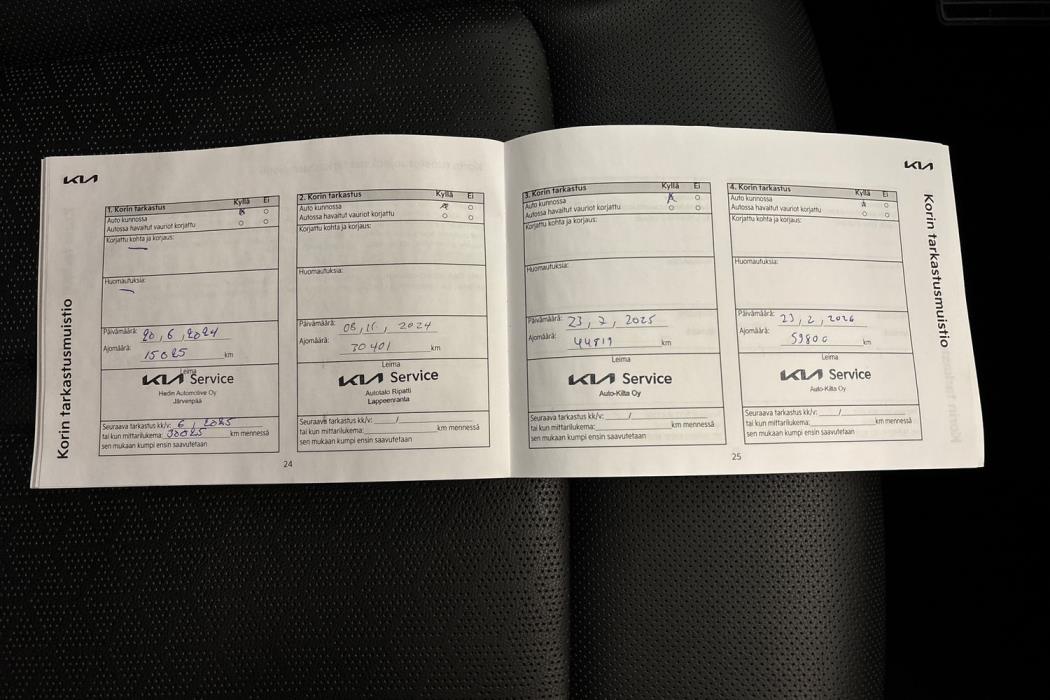 KIA
Korin tarkastusmuistio
1. Korin tarkastus Kyllä Ei
Auto kunnossa
Autossa havaitut vauriot korjattu
Korjattu kohta ja korjaus:
Huomautuksia:
Päivämäärä: 20, 6, 2024
Ajomäärä: 15025 km
Leima
KIA Service
Hedin Automotive Oy
Järvenpää
Seuraava tarkastus kk/v: 6 / 2025
tai kun mittarilukema: 30025 km mennessä
sen mukaan kumpi ensin saavutetaan
2. Korin tarkastus Kyllä Ei
Auto kunnossa
Autossa havaitut vauriot korjattu
Korjattu kohta ja korjaus:
Huomautuksia:
Päivämäärä: 08, 11, 2024
Ajomäärä: 30401 km
Leima
KIA Service
Autotalo Ripatti
Lappeenranta
Seuraava tarkastus kk/v: /
tai kun mittarilukema: km mennessä
sen mukaan kumpi ensin saavutetaan
24
KIA
Korin tarkastusmuistio
3. Korin tarkastus Kyllä Ei
Auto kunnossa
Autossa havaitut vauriot korjattu
Korjattu kohta ja korjaus:
Huomautuksia:
Päivämäärä: 23, 7, 2025
Ajomäärä: 44819 km
Leima
KIA Service
Auto-Kilta Oy
Seuraava tarkastus kk/v: /
tai kun mittarilukema: km mennessä
sen mukaan kumpi ensin saavutetaan
4. Korin tarkastus Kyllä Ei
Auto kunnossa
Autossa havaitut vauriot korjattu
Korjattu kohta ja korjaus:
Huomautuksia:
Päivämäärä: 23, 2, 2026
Ajomäärä: 59800 km
Leima
KIA Service
Auto-Kilta Oy
Seuraava tarkastus kk/v: /
tai kun mittarilukema: km mennessä
sen mukaan kumpi ensin saavutetaan
25